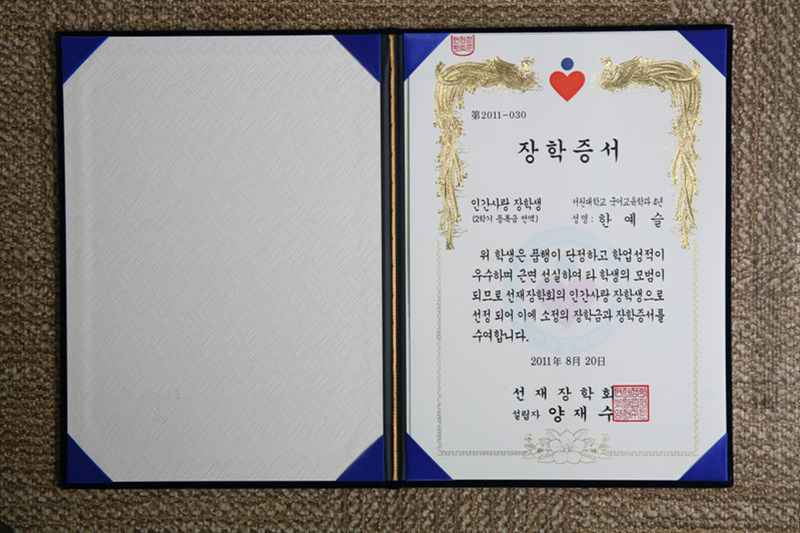 第2011-030
장학증서
인간사랑 장학생
(2학기 등록금 전액)
서원대학교 국어교육학과 4년
성명 : 한 예 슬
위 학생은 품행이 단정하고 학업성적이
우수하며 근면 성실하여 타 학생의 모범이
되므로 선재장학회의 인간사랑 장학생으로
선정 되어 이에 소정의 장학금과 장학증서를
수여합니다.
2011년 8월 20일
선 재 장 학 회
설립자 양 재 수